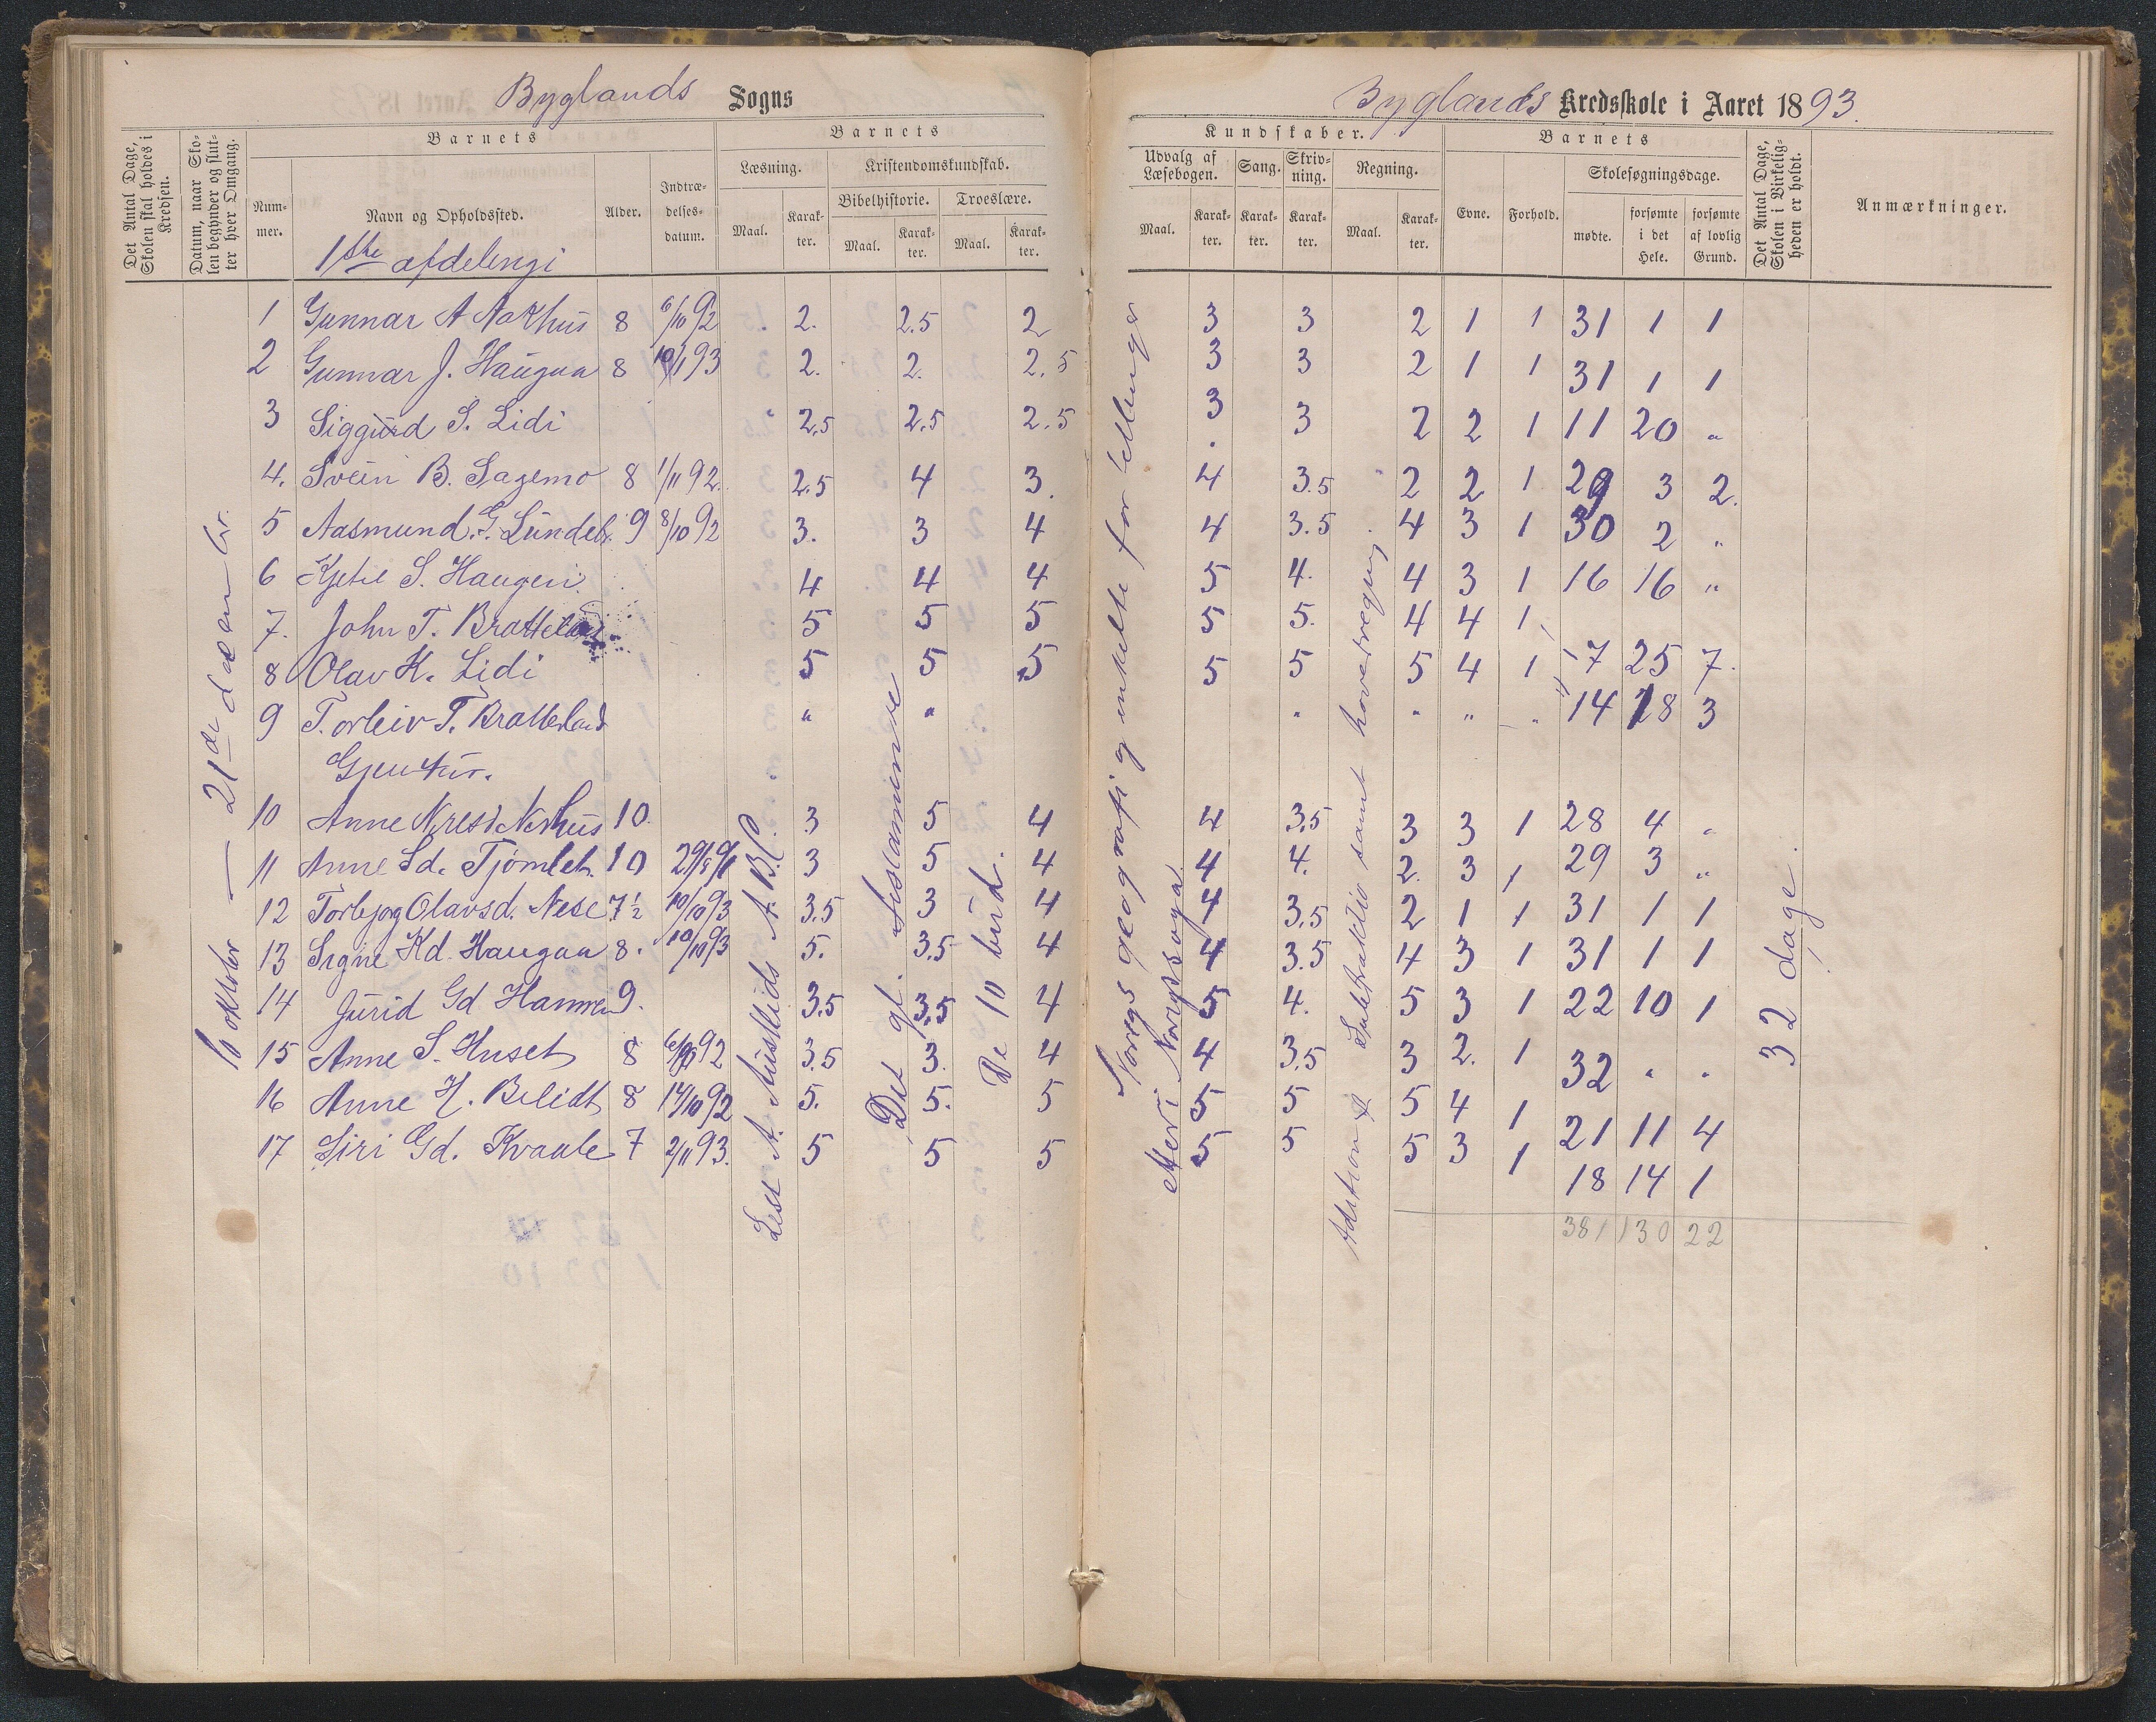 Byglands Sogns
Byglands Kredsskole i Aaret 1893.
Det Antal Dage, Skolen skal holdes i Kredsen.
Datum, naar Skolen begynder og slutter hver Omgang.
Barnets
Nummer.
Navn og Opholdssted.
Alder.
Indtrædelsesdatum.
Barnets
Læsning.
Maal.
Karakter.
Kristendomskundskab.
Bibelhistorie.
Maal.
Karakter.
Troeslære.
Maal.
Karakter.
Kundskaber.
Udvalg af Læsebogen.
Maal.
Karakter.
Sang.
Karakter.
Skrivning.
Karakter.
Regning.
Maal.
Karakter.
Barnets
Evne.
Forhold.
Skolesøgningsdage.
mødte.
forsømte i det Hele.
forsømte af lovlig Grund.
Det Antal Dage, Skolen i Virkeligheden er holdt.
Anmærkninger.
1ste afdelingi
1 Gunnar A Aakhus 8 6/10 92 2. 2.5 2 3 3 2 1 1 31 1 1
2 Gunnar J. Haugaa 8 10/1 93 2. 2. 2.5 3 3 2 1 1 31 1 1
3 Siggurd S. Lidi 2.5 2.5 2.5 3 3 2 2 1 11 20 "
4. Svein B. Sagemo 8 1/11 92. 2.5 4 3. 4 3.5 2 2 1 29 3 2.
5 Aasmund. G. Lundeb. 9 8/10 92 3. 3 4 4 3.5 4 3 1 30 2 "
6 Kjetil S. Haugen. 4 4 4 5 4. 4 3 1 16 16 "
7. John T. Bratteland 5 5 5 5 5. 4 4 1
8 Olav K. Lidi 5 5 5 5 5 5 4 1 7 25 7.
9 Torleiv T. Bratteland " " " " " " 14 18 3
Gjentur.
10 Anne Nerhus 10. 3 5 4 4 3.5 3 3 1 28 4 "
11 Anne Sd. Tjømlet. 10 3 5 4 4 4. 2. 3 1 29 3 "
12 Torbjog Olavsd. Nese 7½ 10/10 93 3.5 3 4 4 3.5 2 1 1 31 1 1
13 Signe Kd. Haugaa 8. 10/10 93 5. 3.5 4 4 3.5 4 3 1 31 1 1
14 Jurid Gd Hamre 9. 3.5 3.5 4 5 4. 5 3 1 22 10 1
15 Anne S. Huset 8 92 3.5 3. 4 4 3.5 3 2. 1 32 " "
16 Anne H. Belidt 8 14/10 92 5. 5. 5 5 5 5 4 1 21 11 4
17 Siri Gd. Kvaale 7 2/11 93. 5 5 5 5 5 5 3 1 18 14 1
381 130 22
10 oktober — 21de desembr.
Lest A. Austlids A.B.C.
Det gl. testamente
De 10 bud.
Noregs geografi og enkelte fortellinger
Meri Norigssoga
Adition & Subtraktio samt hovedregning.
32 dage.